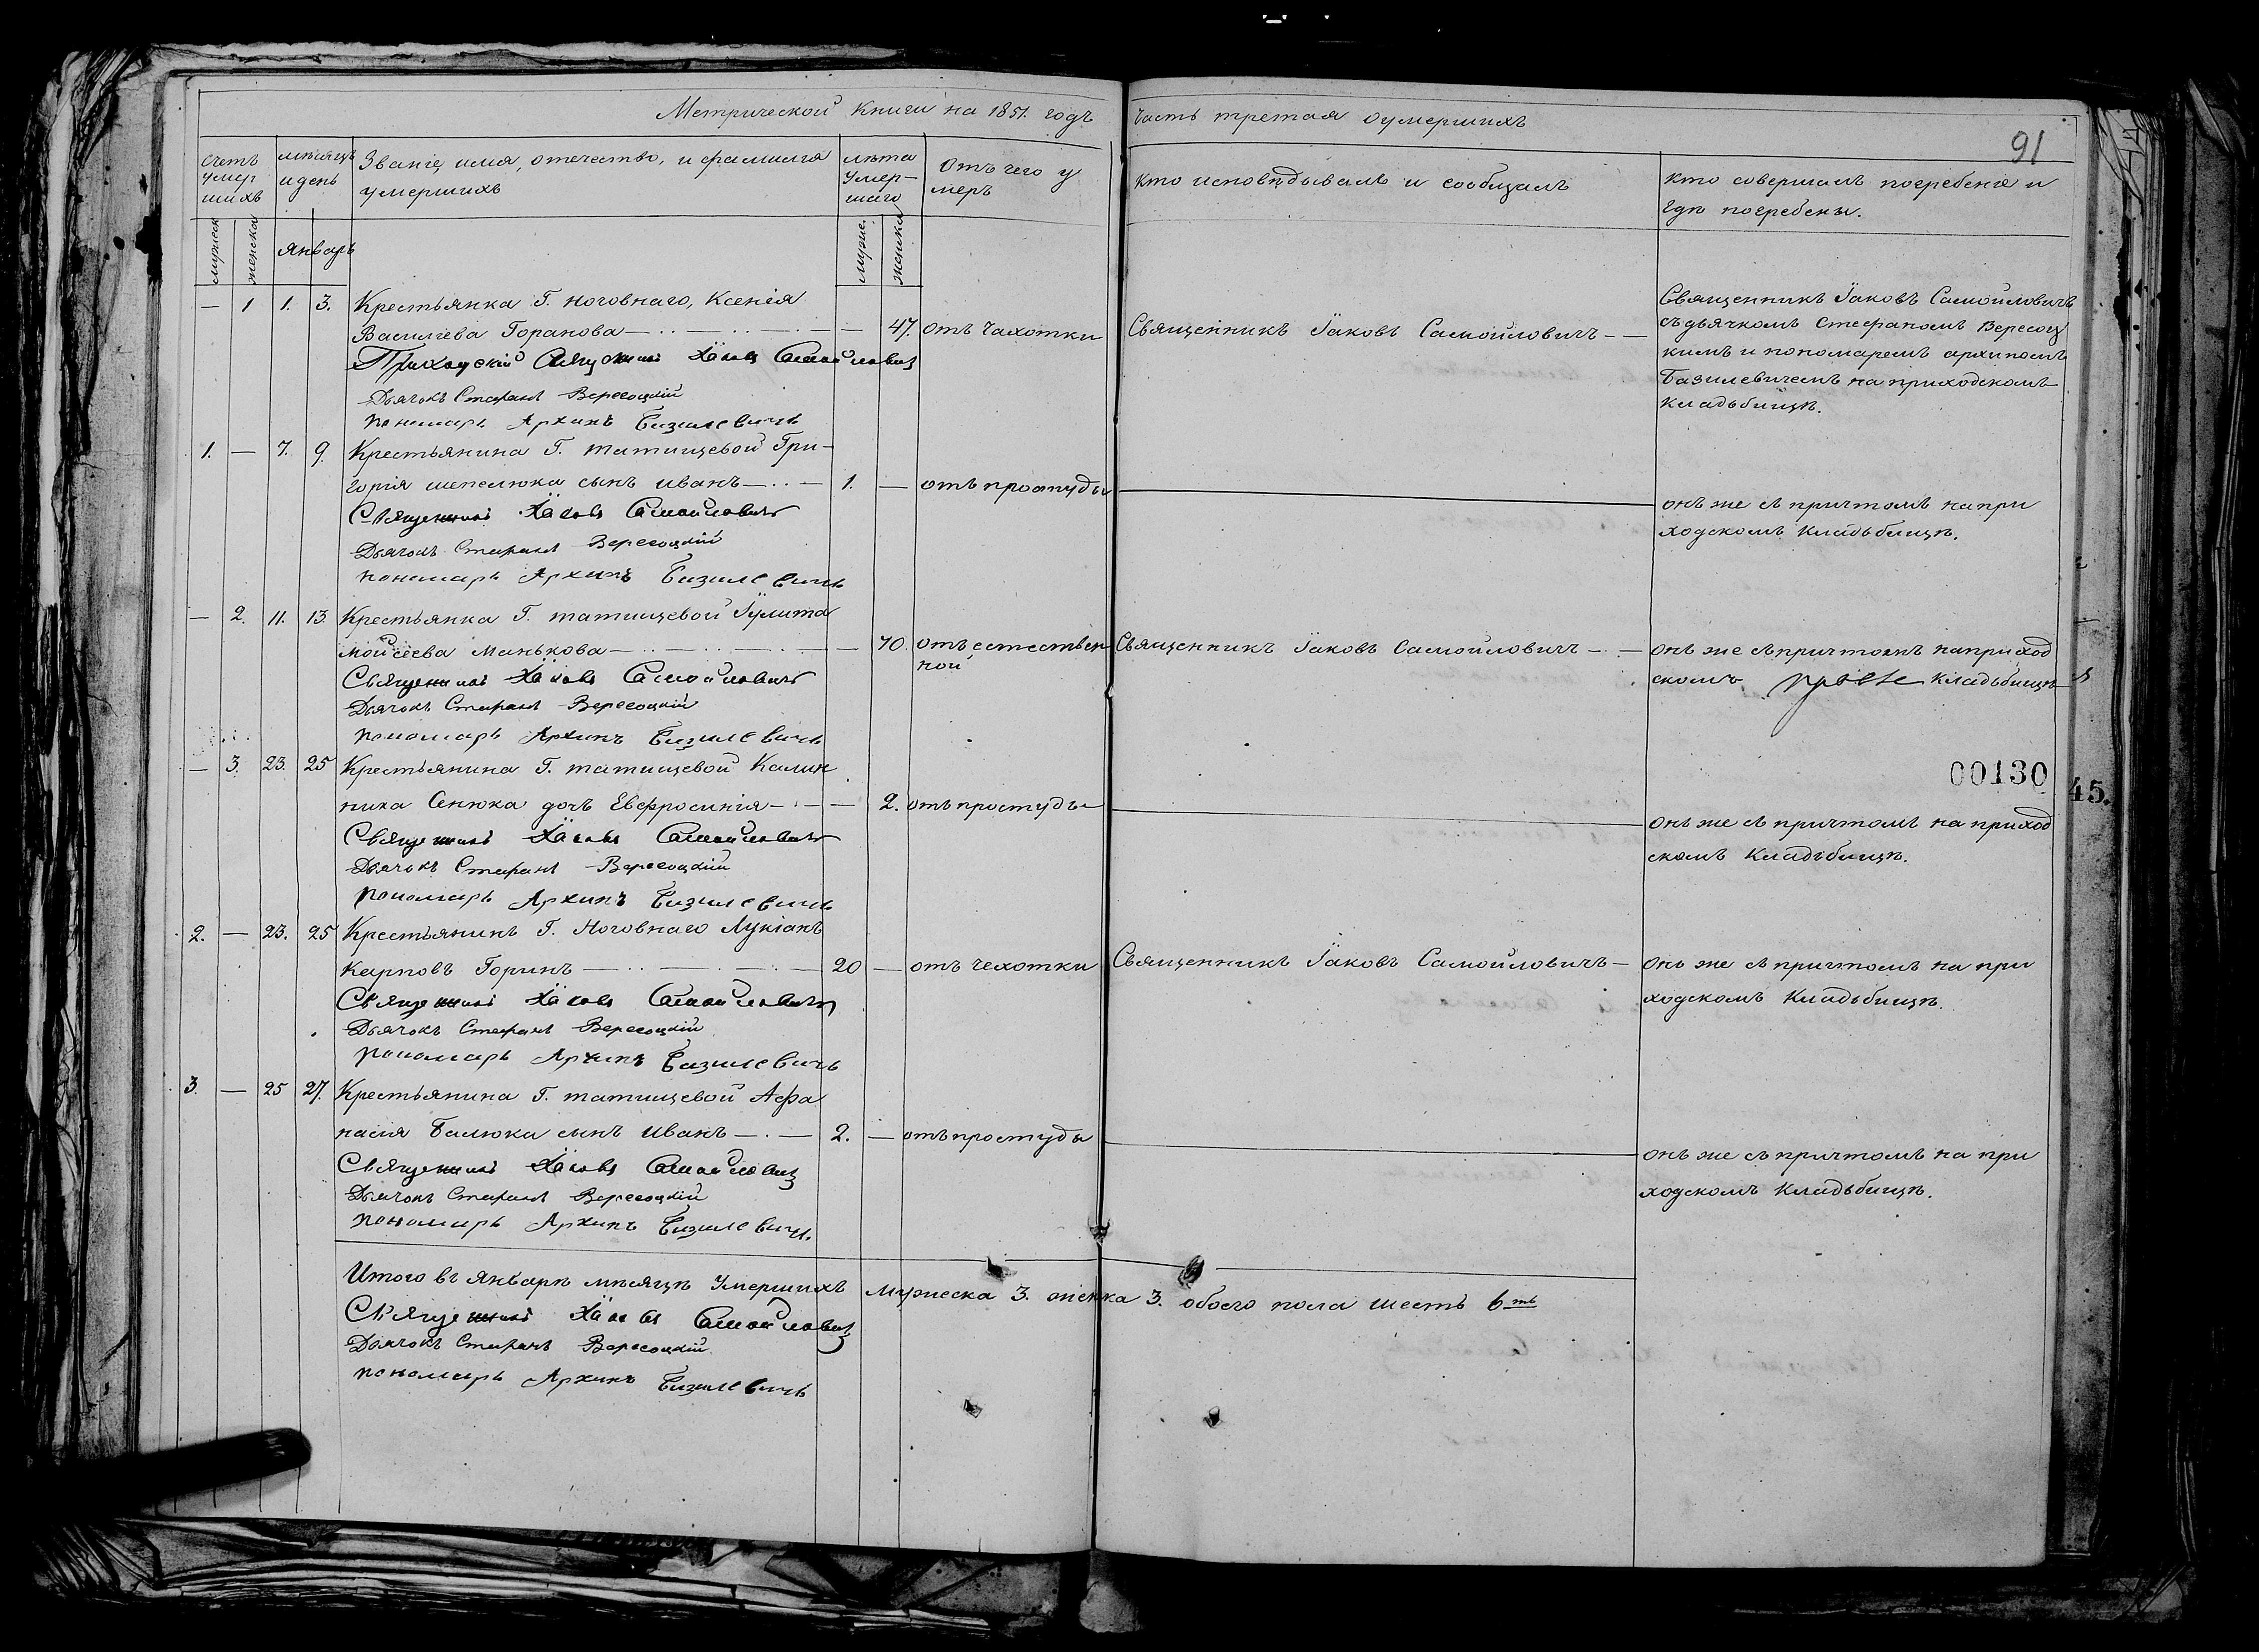 Метрической Книги на 1851. годъ Часть третая оумершихъ
91
Счетъ умер шихъ
мѣсяцъ и день
Званіе, имя, отечество, и фамилія умершихъ
лѣта умер- шаго
Отъ чего у меръ
кто исповѣдывалъ и сообщалъ
кто совершалъ погребеніе и гдѣ погребены.
мужеск
женска
Январь
муже.
женска
— 1 1. 3. Крестьянка Г. Ноговнаго, Ксенія
Василіева Горанова — 47. отъ чахотки Священникъ Іаковъ Самойловичъ —
Священникъ Іаковъ Самойловичъ
съ дьячкомъ Стефаномъ Вересоц
кимъ и пономаремъ архипомъ
Базилевичемъ на приходскомъ
Кладьбищѣ.
Приходскій Священникъ Іаковъ Самойловичъ
Дьячокъ Стефанъ Вересоцкій
пономарь Архипъ Базилевичъ
1. — 7. 9. Крестьянина Г. татищевой Гри-
горія шепелюка сынъ иванъ — 1. — отъ простуды —
онъ же съ причтомъ на при
ходскомъ Кладьбищѣ.
Священникъ Іаковъ Самойловичъ
Дьячокъ Стефанъ Вересоцкій
пономарь Архипъ Базилевичъ
— 2. 11. 13. Крестьянка Г. татищевой Іулита
мойсеева Манькова — 70. отъ естествен
ной
Священникъ Іаковъ Самойловичъ —
онъ же съ причтомъ на приход
скомъ Кладьбищѣ
Священникъ Іаковъ Самойловичъ
Дьячокъ Стефанъ Вересоцкій
пономарь Архипъ Базилевичъ
— 3. 23. 25 Крестьянина Г. татищевой Калин
ника Сенюка дочь Евфросинія — 2. отъ простуды —
00130
45.
онъ же съ причтомъ на приход
скомъ Кладьбищѣ.
Священникъ Іаковъ Самойловичъ
Дьячокъ Стефанъ Вересоцкій
пономарь Архипъ Базилевичъ
2. — 23. 25 Крестьянинъ Г. Ноговнаго Лукіанъ
Карповъ Горинъ — 20 — отъ чехотки Священникъ Іаковъ Самойловичъ —
онъ же съ причтомъ на при
ходскомъ Кладьбищѣ.
Священникъ Іаковъ Самойловичъ
Дьячокъ Стефанъ Вересоцкій
пономарь Архипъ Базилевичъ
3. — 25 27. Крестьянина Г. татищевой Афа
насія Балюка сынъ Иванъ — 2. — отъ простуды —
онъ же съ причтомъ на при
ходскомъ Кладьбищѣ.
Священникъ Іаковъ Самойловичъ
Дьячокъ Стефанъ Вересоцкій
пономарь Архипъ Базилевичъ.
Итого въ январѣ мѣсяцѣ Умершихъ мужеска 3. женка 3. обоего пола шесть 6ть
Священникъ Іаковъ Самойловичъ
Дьячокъ Стефанъ Вересоцкій
пономарь Архипъ Базилевичъ